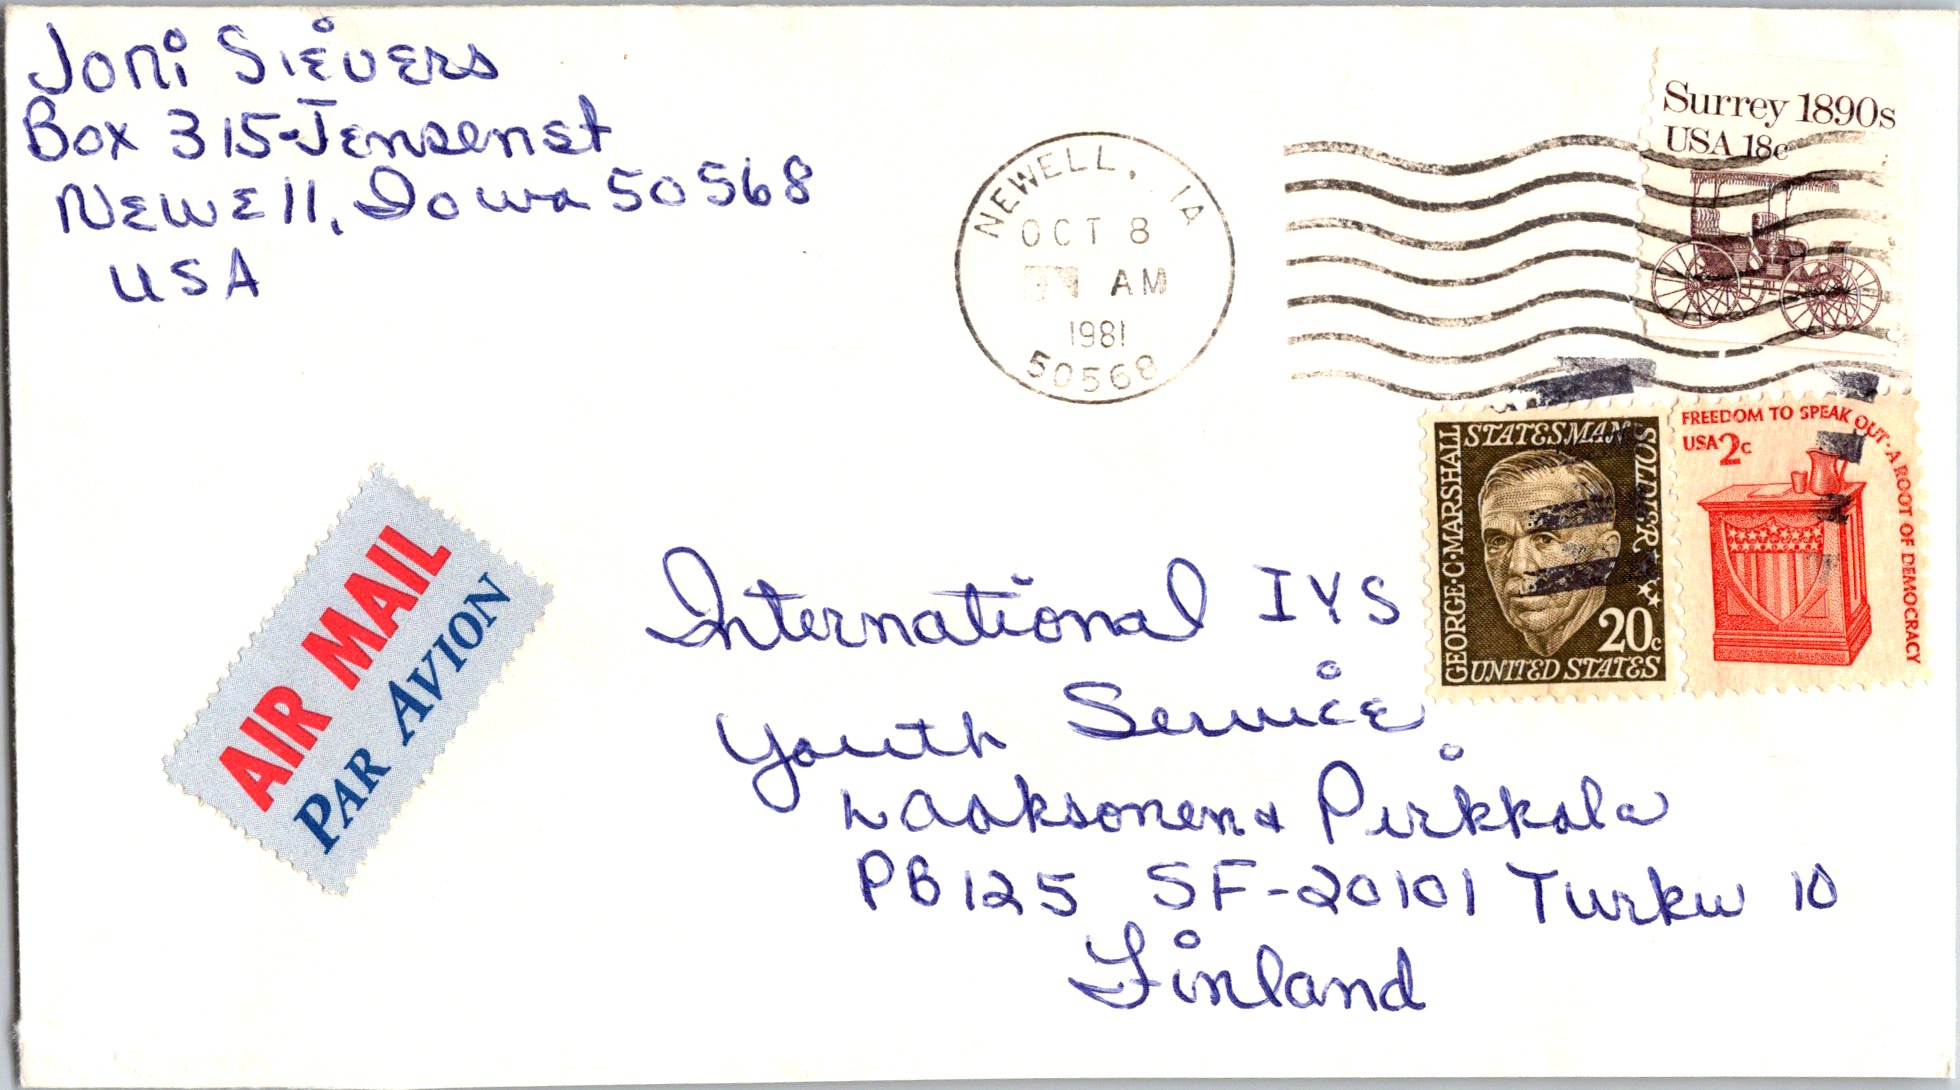 Joni Sievers
Box 315-Jensenst
Newell, Iowa 50568
USA
NEWELL, IA
OCT 8
AM
1981
50568
Surrey 1890s
USA 18c
GEORGE·C·MARSHALL
STATESMAN
SOLDIER
20c
UNITED STATES
FREEDOM TO SPEAK OUT·A ROOT OF DEMOCRACY
USA 2c
AIR MAIL
PAR AVION
International IYS
Youth Service
Laaksonen & Pirkkala
PB 125 SF-20101 Turku 10
Finland